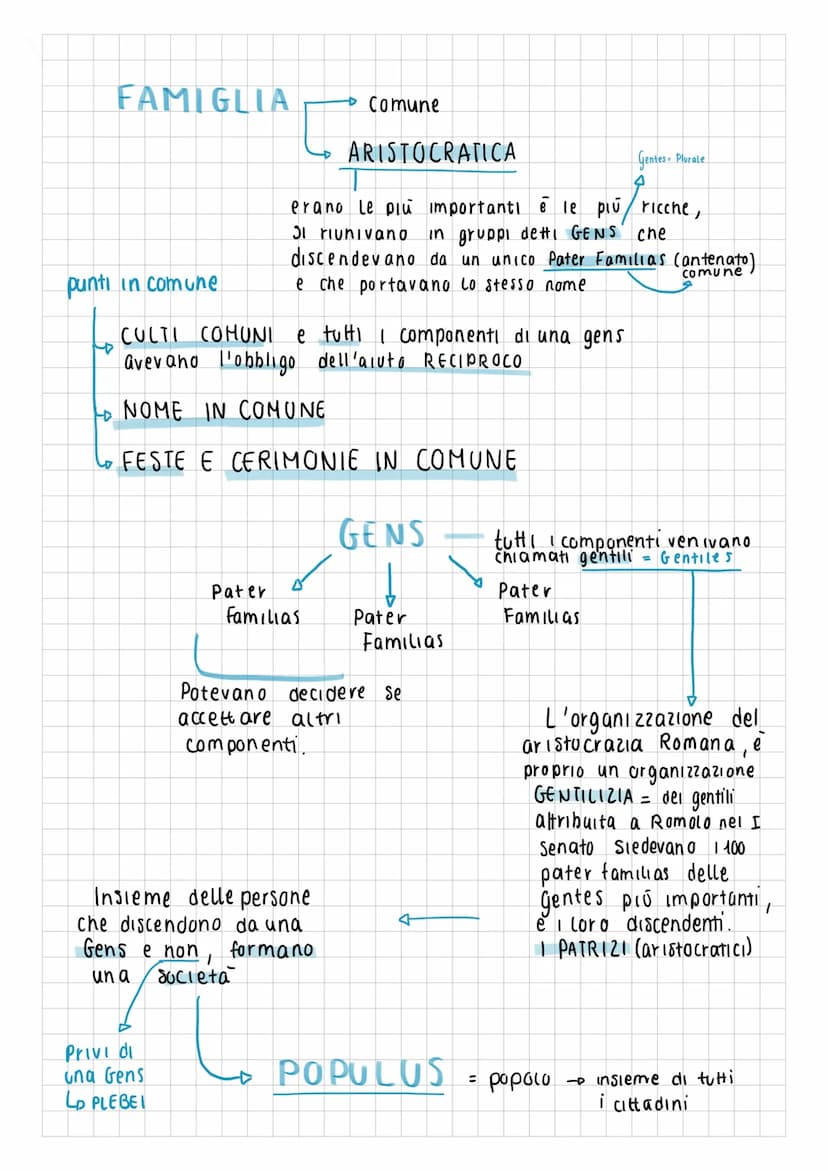 FAMIGLIA → Comune
ARISTOCRATICA
Gentes = Plurale
erano le più importanti e le più ricche,
si riunivano in gruppi detti GENS che
discendevano da un unico Pater Familias (antenato comune)
e che portavano lo stesso nome
punti in comune
CULTI COMUNI e tutti i componenti di una gens
avevano l'obbligo dell'aiuto RECIPROCO
NOME IN COMUNE
FESTE E CERIMONIE IN COMUNE
GENS — tutti i componenti venivano
chiamati gentili = Gentiles
Pater
Familias
Pater
Familias
Pater
Familias
Potevano decidere se
accettare altri
componenti.
L'organizzazione del
aristocrazia Romana, è
proprio un organizzazione
GENTILIZIA = dei gentili
attribuita a Romolo nel I
Senato siedevano i 100
pater familias delle
gentes più importanti,
e i loro discendenti.
I PATRIZI (aristocratici)
Insieme delle persone
che discendono da una
Gens e non, formano
una società
Privi di
una Gens
↳ PLEBEI
POPULUS = popolo → insieme di tutti
i cittadini